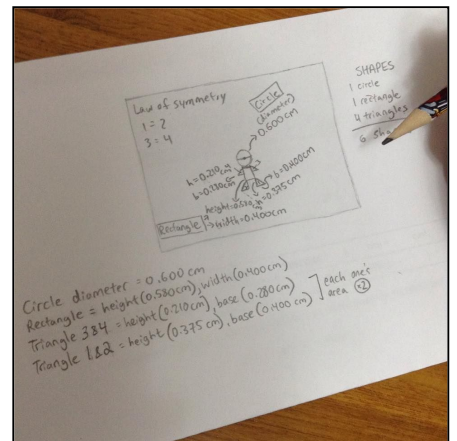 Law of symmetry
1 = 2
3 = 4
Circle
(diameter)
0.600cm
h=0.210cm
b=0.280cm
b=0.400cm
h=0.375cm
height:0.580cm
width=0.400cm
Rectangle
SHAPES
1 circle
1 rectangle
4 triangles
6 sha
Circle diameter = 0.600 cm
Rectangle = height (0.580cm), width (0.400cm)
Triangle 3&4 = height (0.210cm), base (0.280cm)
Triangle 1&2 = height (0.375 cm), base (0.400 cm)
each one's
area x2